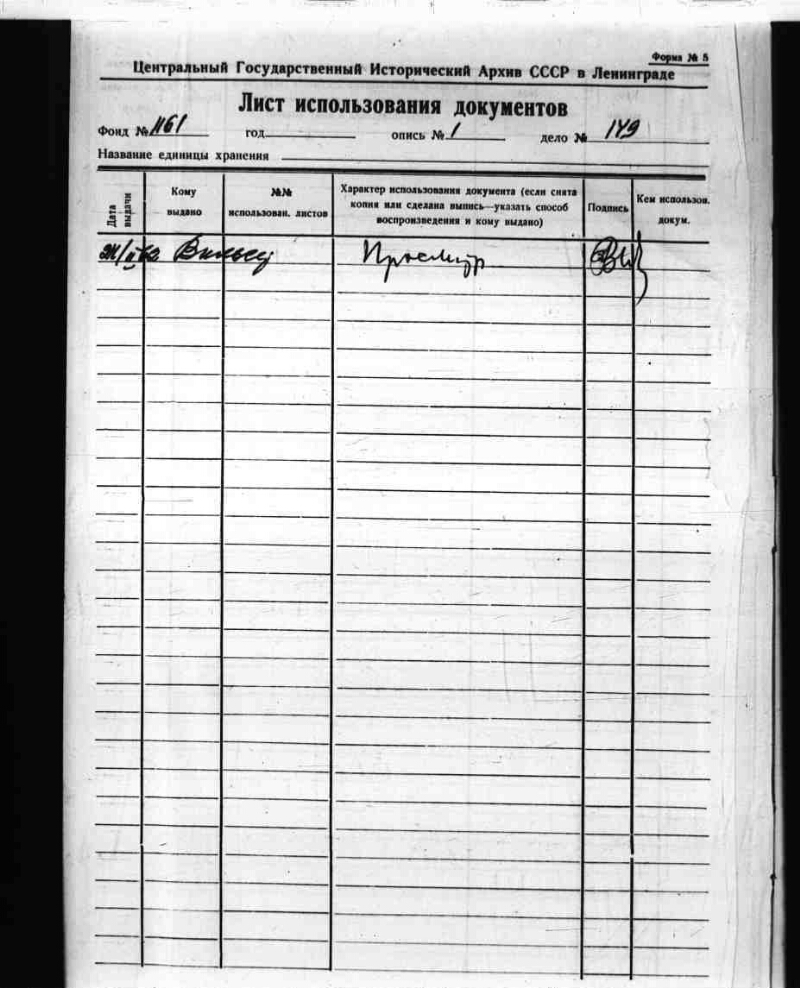 Форма № 5
Центральный Государственный Исторический Архив СССР в Ленинграде
Лист использования документов
Фонд № 1161 год опись № 1 дело № 149
Название единицы хранения
Дата выдачи
Кому выдано
№№ использован. листов
Характер использования документа (если снята копия или сделана выпись—указать способ воспроизведения и кому выдано)
Подпись
Кем использов. докум.
Просмотр